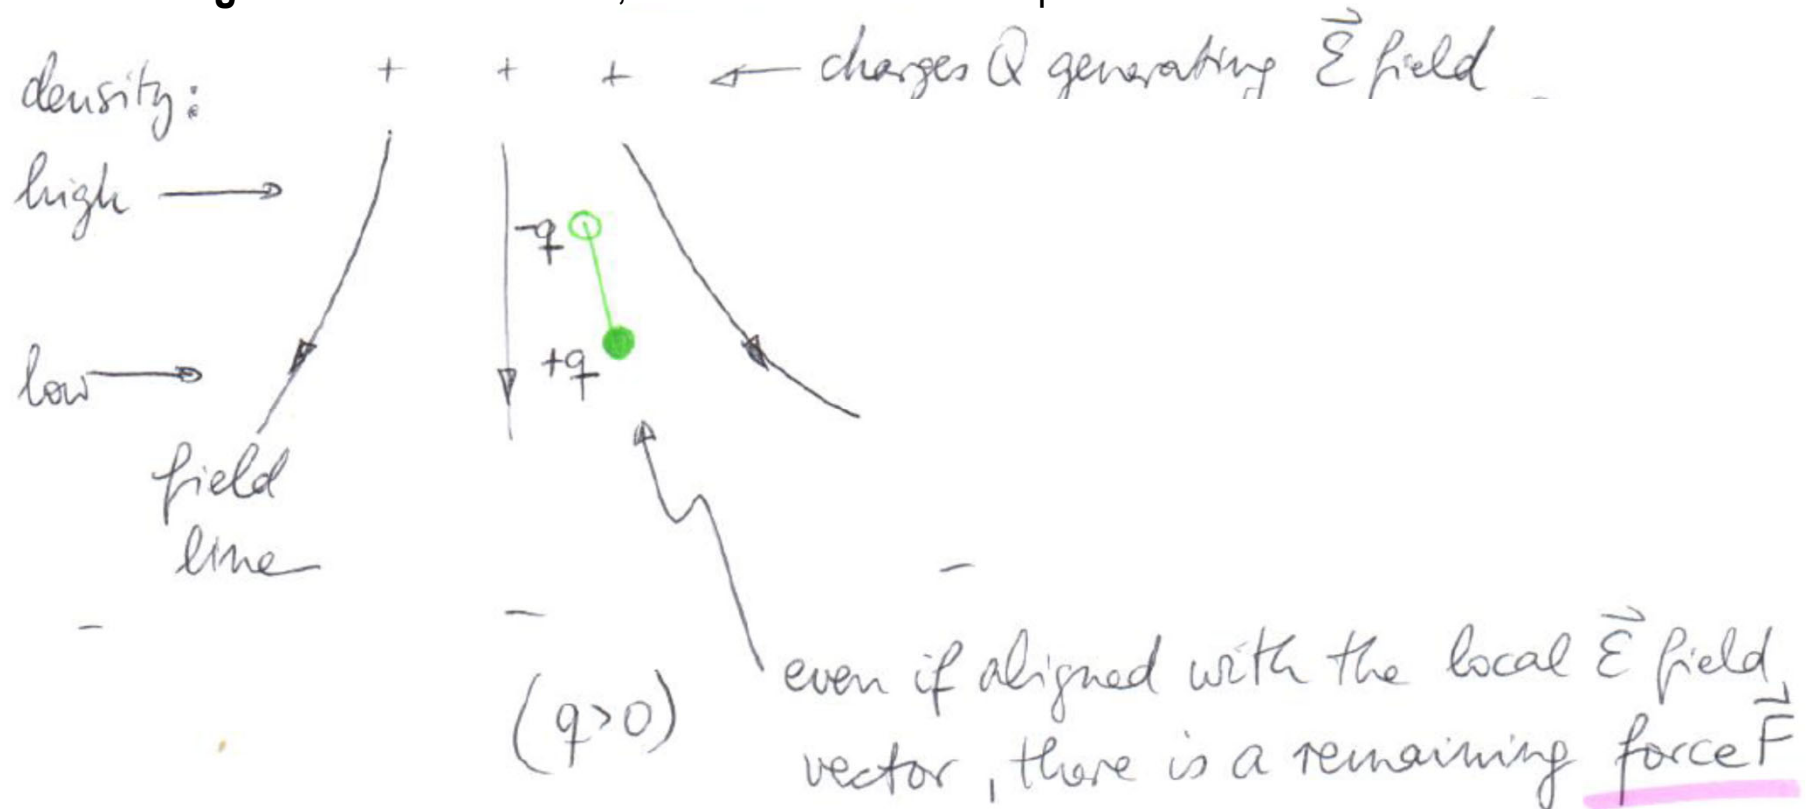 density:
+ + + ← charges Q generating ℰ⃗ field
high →
-q
+q
low →
field
line
-
- -
(q>0)
even if aligned with the local ℰ⃗ field,
vector, there is a remaining force F⃗